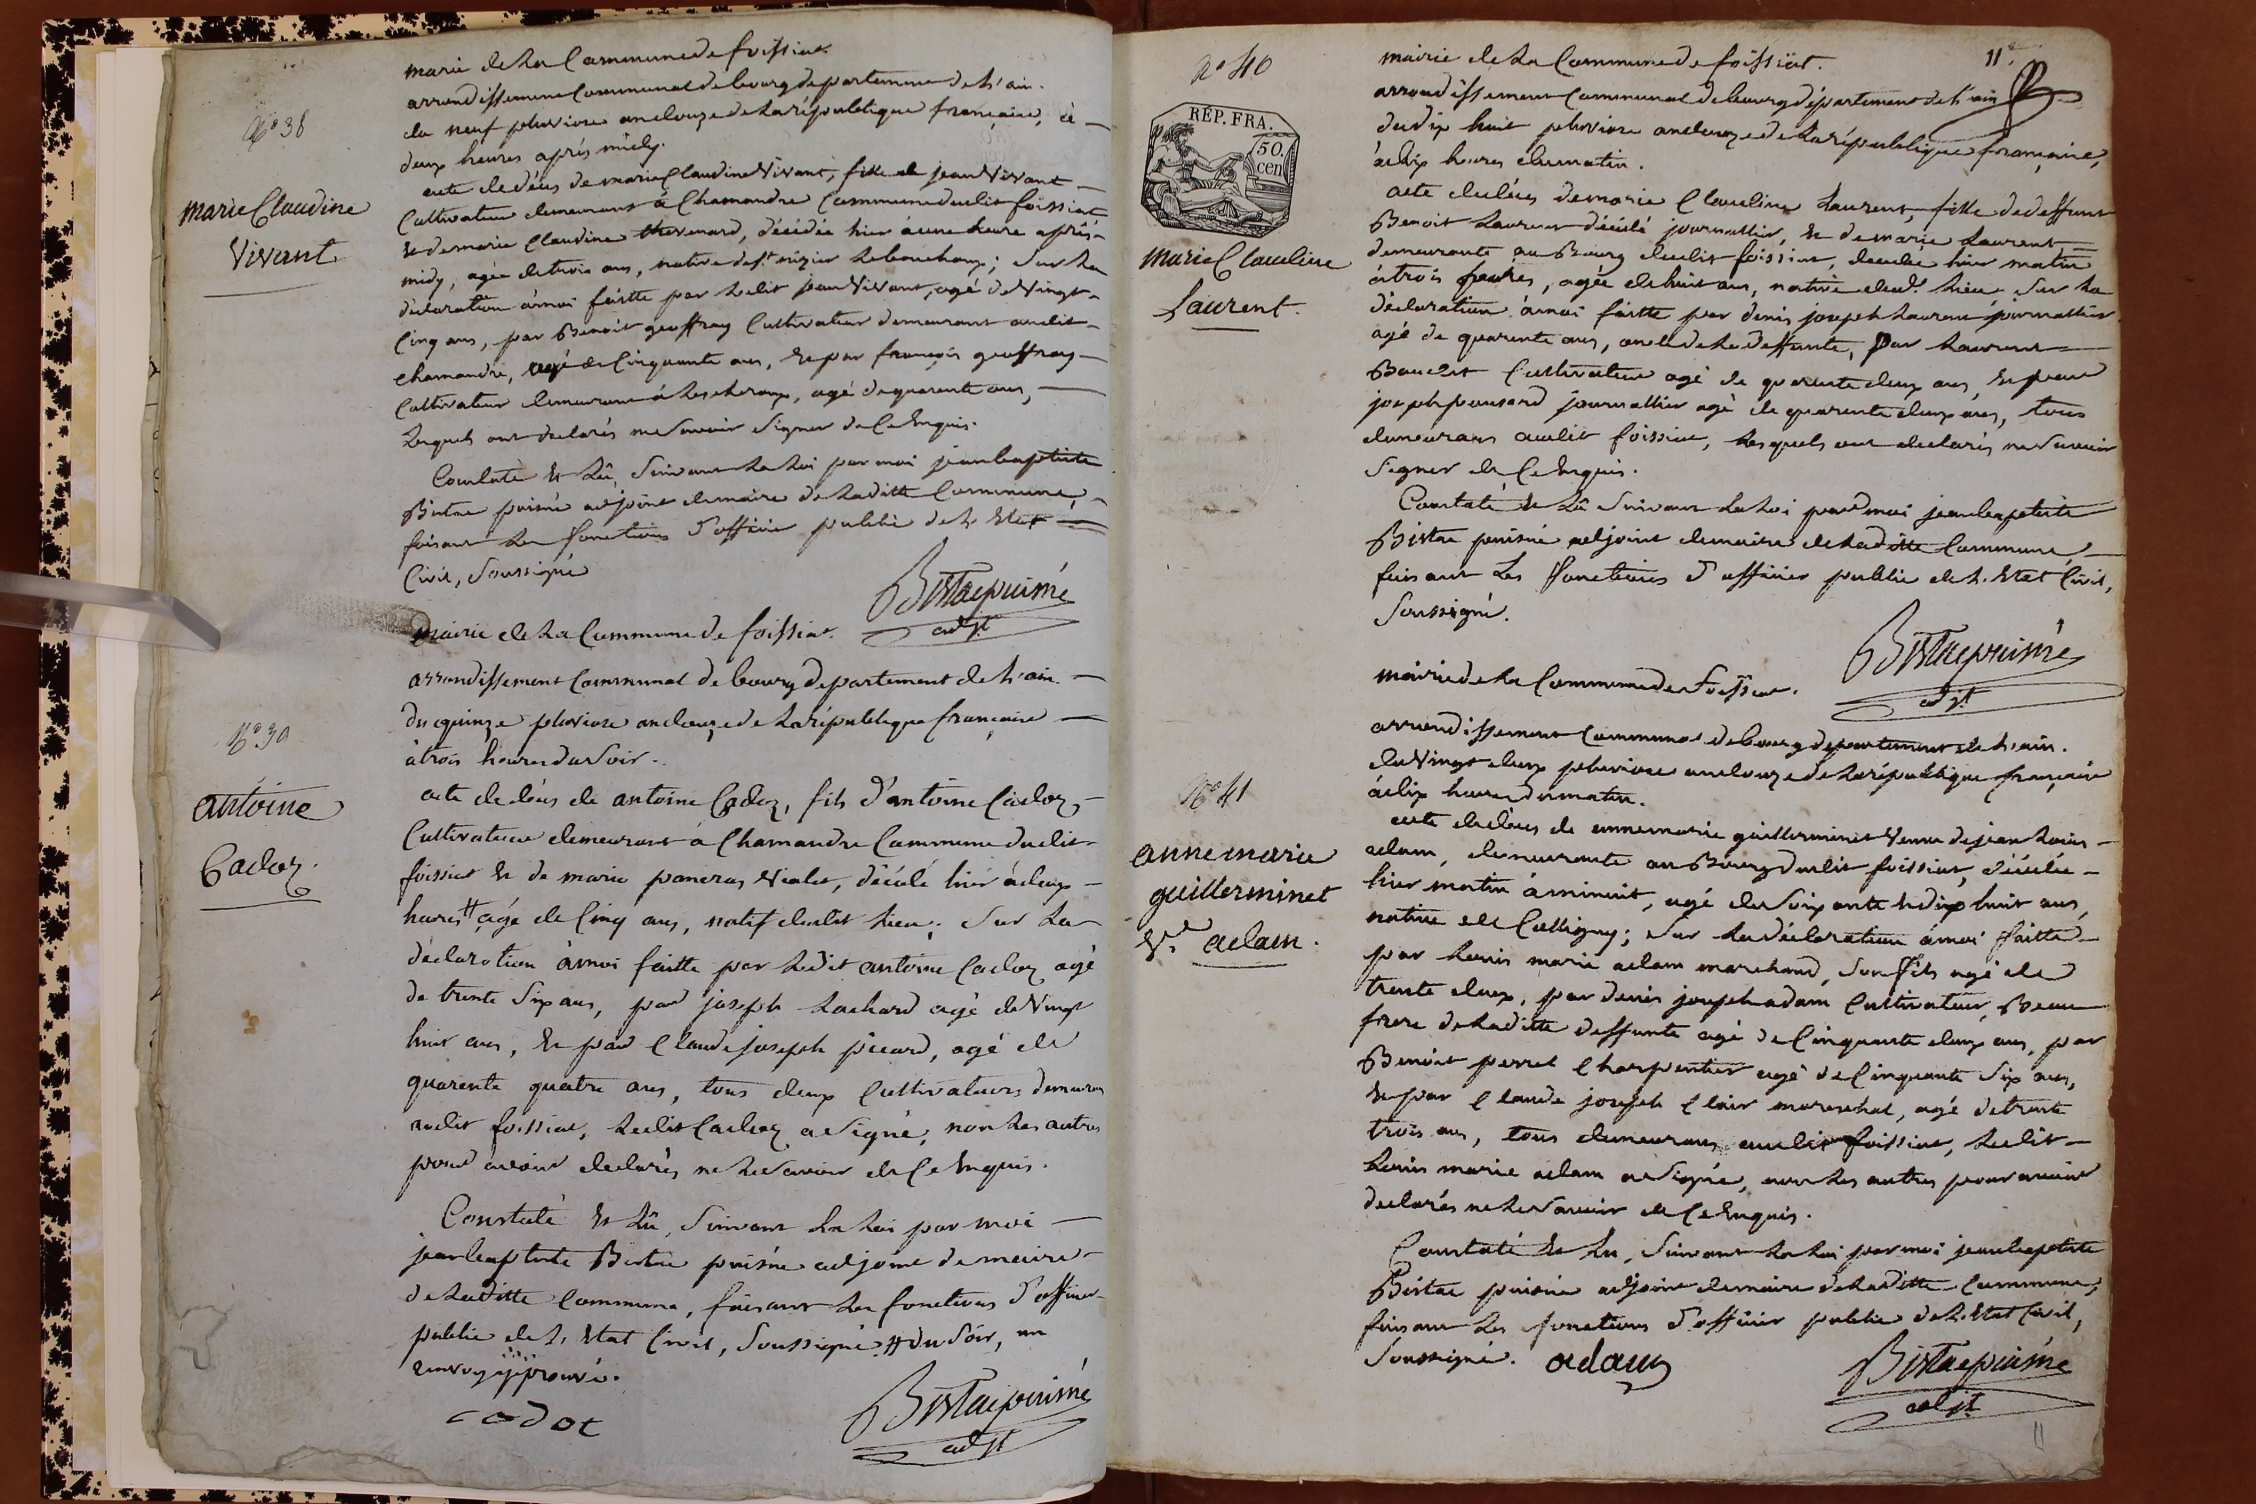 N° 38
marie Claudine
Vivant
mairie de La Commune de foissiat.
arrondissement Communal de bourg departement de L'ain.
du neuf pluviose an douze de La république française, à
deux heures après midy.
acte de décés de marie Claudine Vivant, fille de jean Vivant
Cultivateur demeurant à Chamandre Commune dudit foissiat
et de marie Claudine thevenard, décédée hier à une heure après
midy, agée de trois ans, native de st. nizier Le bouchoux; Sur La
déclaration à moi faitte par Ledit jean Vivant, agé de Vingt
Cinq ans, par Benoit geoffray Cultivateur demeurant audit
Chamandre, agé de Cinquante ans, et par françois geoffray
Cultivateur demeurant à Lescheroux, agé de quarente ans,
Lesquels ont declarés ne Savoir Signer de Ce Enquis.
Constaté et Lû Suivant La Loi par moi jean baptiste
Bistac puisné adjoint du maire de Laditte Commune,
faisant Les fonctions d'officier public de L'Etat
Civil, Soussigné
Bistac puisné
adjt
N° 39
antoine
Cadoz.
mairie de La Commune de foissiat.
arrondissement Communal de bourg departement de L'ain.
du quinze pluviose an douze de La république française
à trois heures du Soir.
acte de décés de antoine Cadoz, fils d'antoine Cadoz,
Cultivateur demeurant à Chamandre Commune dudit
foissiat et de marie pancras Vialet, décédé hier à deux
heures # agé de Cinq ans, natif dudit Lieu; Sur La
déclaration à moi faitte par Ledit antoine Cadoz agé
de trente Six ans, par joseph Lachard agé de Vingt
huit ans, et par Claude joseph picard, agé de
quarente quatre ans, tous deux Cultivateurs demeurans
audit foissiat, Ledit Cadoz a Signé, non Les autres
pour avoir declarés ne Le Savoir de Ce Enquis.
Constaté et Lû, Suivant La Loi par moi
jean baptiste Bistac puisné adjoint du maire
de Laditte Commune, faisant Les fonctions d'officier
public de L'Etat Civil, Soussigné # du Soir, un
renvoy approuvé.
codot
Bistac puisné
adjt
11.
N° 40
RÉP. FRA.
50.
cen
marie Claudine
Laurent.
mairie de La Commune de foissiat.
arrondissement Communal de bourg département de L'ain
du dix huit pluviose an douze de La république française,
à dix heures du matin.
acte de décés de marie Claudine Laurent, fille de deffunt
Benoit Laurent décédé journallier, et de marie Laurent
demeurante au Bourg dudit foissiat, decedée hier matin
à trois heures, agée de huit ans, native dud. Lieu. Sur La
déclaration à moi faitte par denis joseph Laurent journallier
agé de quarente ans, oncle de La deffunte, par Laurent
Baudet Cultivateur agé de quarente deux ans, et par
joseph pausard journallier agé de quarente deux ans, tous
demeurans audit foissiat, Lesquels ont declarés ne Savoir
Signer de Ce Enquis.
Constaté et Lû Suivant La Loi par moi jean baptiste
Bistac puisné adjoint du maire de Laditte Commune
faisant Les fonctions d'officier public de L'Etat Civil,
Soussigné.
Bistac puisné
adjt
N° 41
anne marie
guillerminet
Ve. adam.
mairie de La Commune de Foissiat.
arrondissement Communal de bourg departement de L'ain.
du Vingt deux pluviose an douze de La république française
à dix heures du matin.
acte de décés de anne marie guillerminet Veuve de jean Louis
adam, demeurante au Bourg dudit foissiat, décédée
hier matin à minuit, agé de Soixante et dix huit ans,
native de Colligny; Sur La déclaration à moi faitte
par Louis marie adam marchand, Son fils agé de
trente deux, par denis joseph adam Cultivateur, Beau
frere de Laditte deffunte agé de Cinquante deux ans, par
Benoit perret Charpentier agé de Cinquante Six ans,
et par Claude joseph Clair mareschal, agé de trente
trois ans, tous demeurans audit foissiat, Ledit
Louis marie adam a Signé, non Les autres pour avoir
declarés ne Le Savoir de Ce Enquis.
Constaté et Lu, Suivant La Loi par moi jean baptiste
Bistac puisné adjoint du maire de Laditte Commune,
faisant Les fonctions d'officier public de L'Etat Civil,
Soussigné.
adam
Bistac puisné
adjt
11